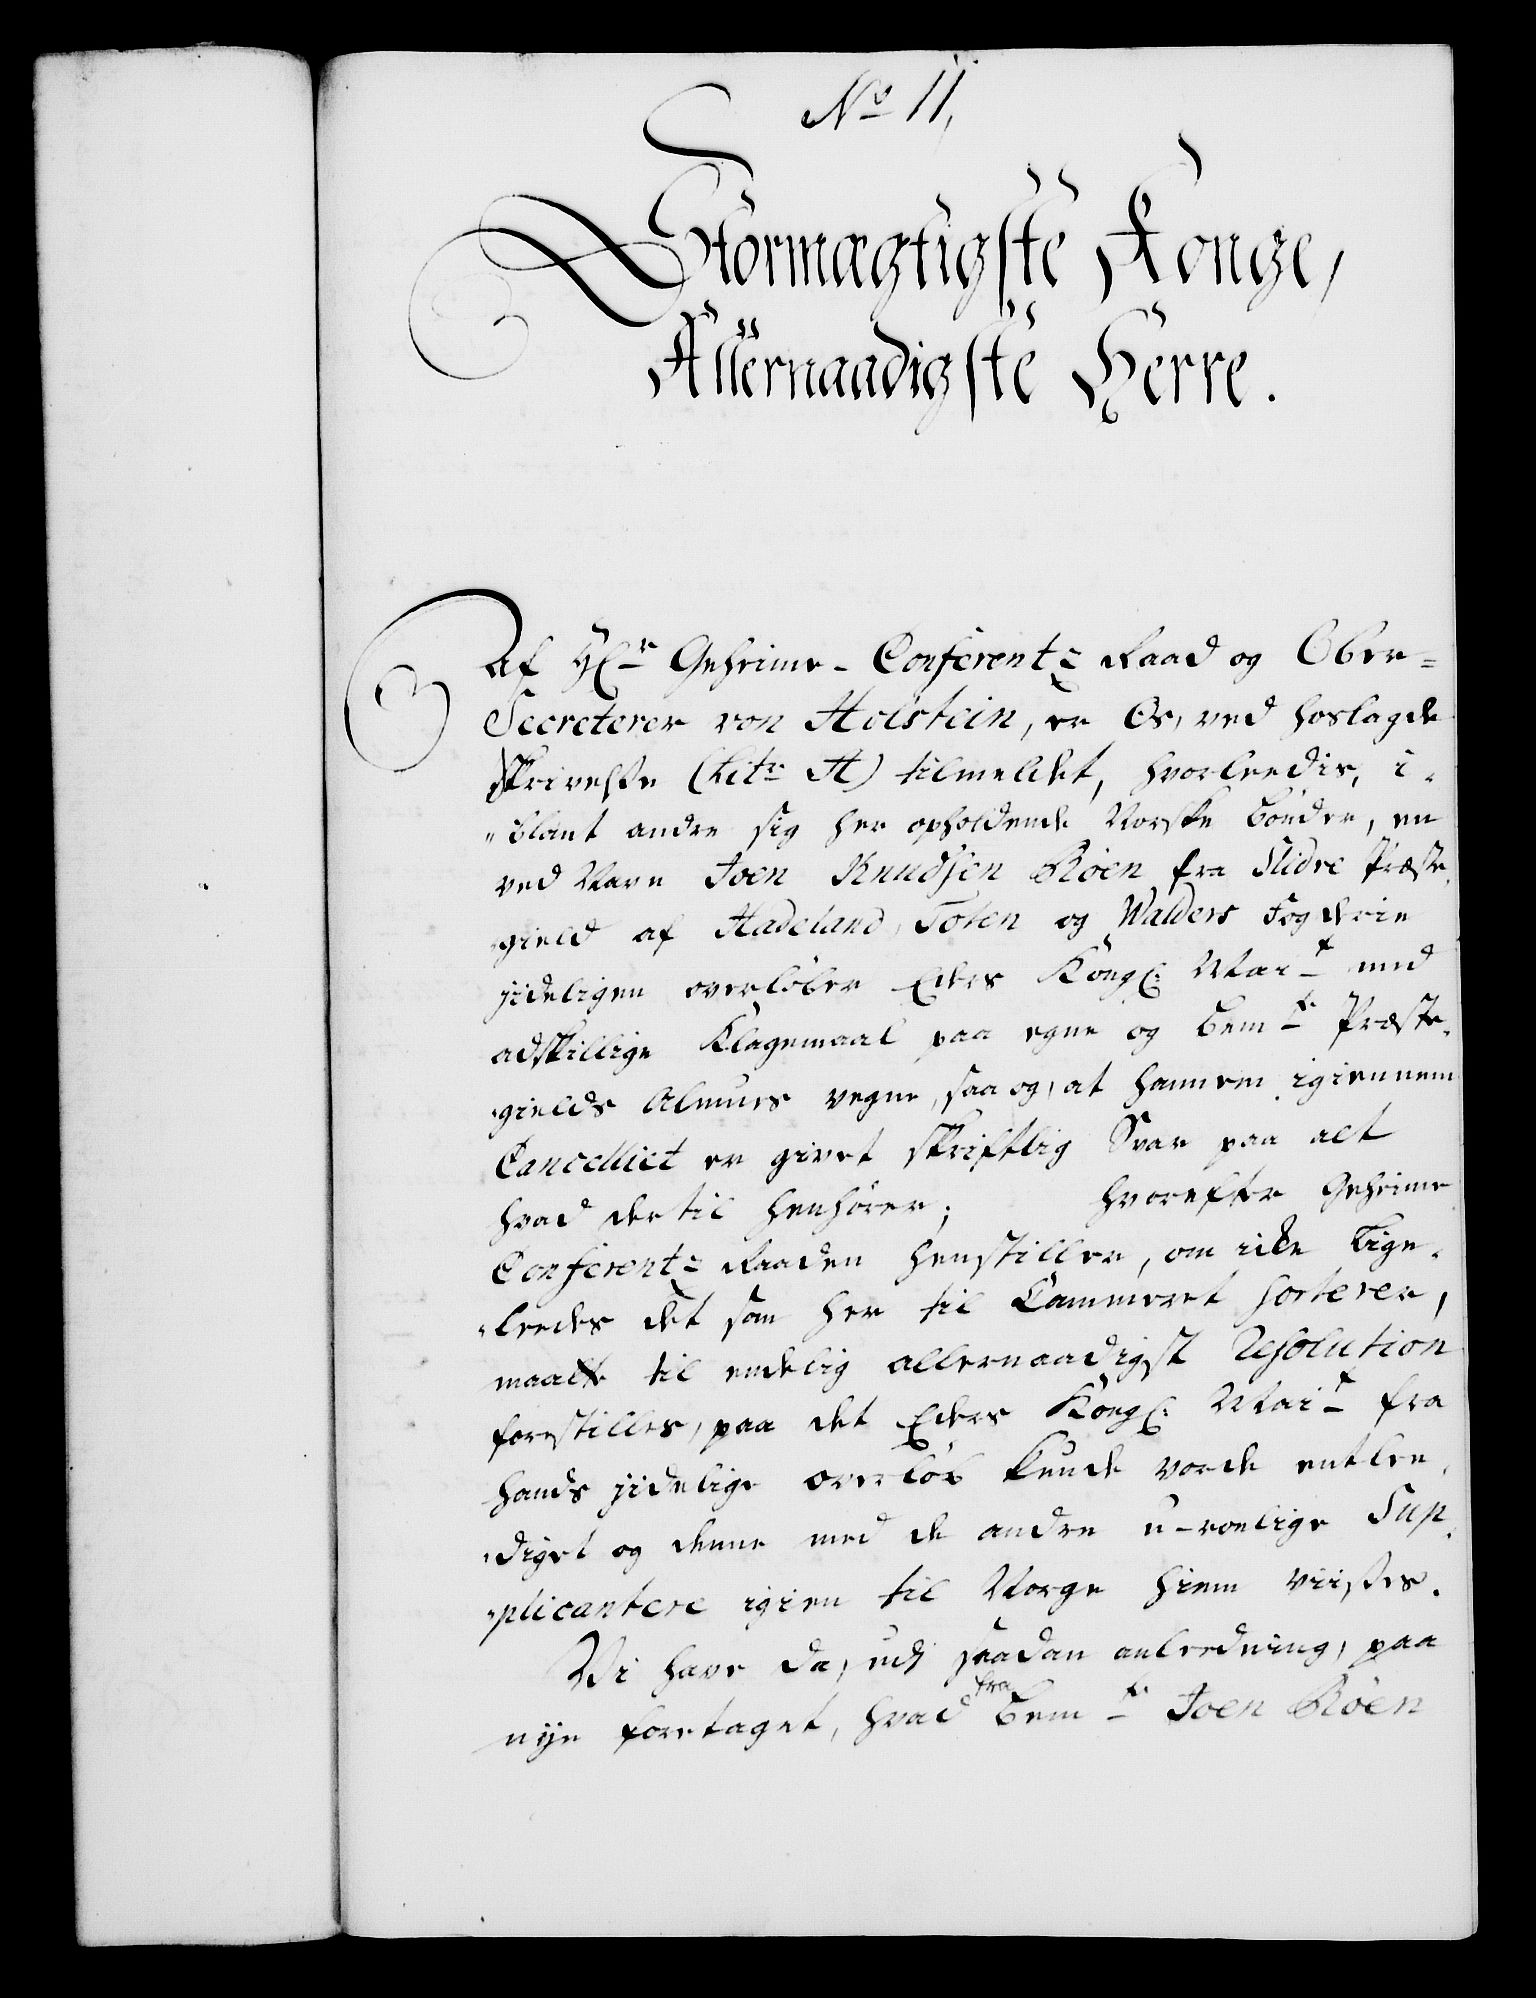 No 11,
Stormægtigste Konge,
Allernaadigste Herre.
Af Hr Geheime-Conferentz Raad og Ober-
Secreterer von Holstein, er Os, ved hoslagde
Skrivelse (Litr A) tilmeldet, hvorleedis, i-
blant andre sig her opholdende Norske bönder, en
ved Navn Joen Knudsen Röen fra Slidre Præste-
gield af Hadeland, Toten og Walders Fogderie
jideligen overlöber Eders Kongl: Mait med
adskillige Klagemaal paa egne og bemte Præste-
gields Almues vegne, saa og, at hannem igiennem
Cancelliet er givet skriftlig Svar paa alt
hvad der til henhörer; hvorefter Geheime
Conferentz Raaden henstiller, om icke lige-
leedes det som her til Cammeret sorterer,
maatte til endelig allernaadigst Resolution
forestilles, paa det Eders Kongl: Mait fra
hands jidelige overlöb kunde vorde entlee-
diget og denne med de andre u-roelige Sup-
plicantere igien til Norge hiem viises.
Vi have da, udi saadan anleedning, paa
nye foretaget, hvad fra bemte Joen Röen